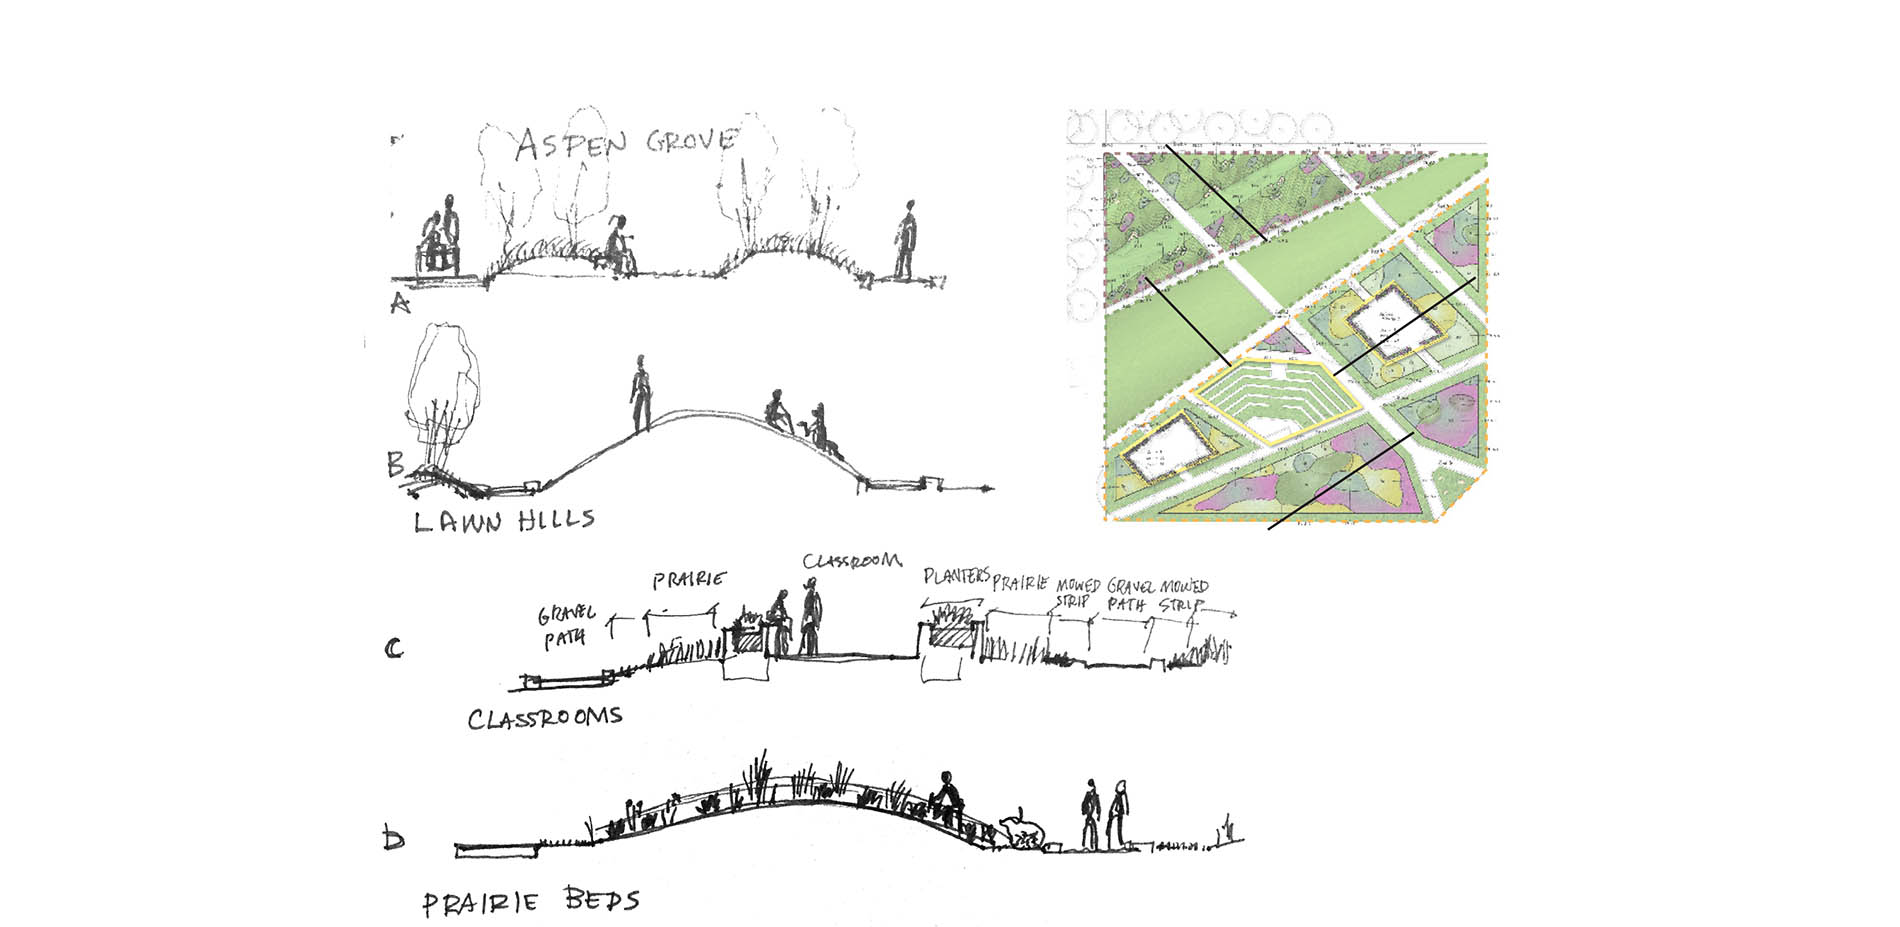 ASPEN GROVE
A
B
LAWN HILLS
CLASSROOM
PRAIRIE
PLANTERS PRAIRIE MOWED STRIP GRAVEL PATH MOWED STRIP
GRAVEL
PATH
C
CLASSROOMS
D
PRAIRIE BEDS